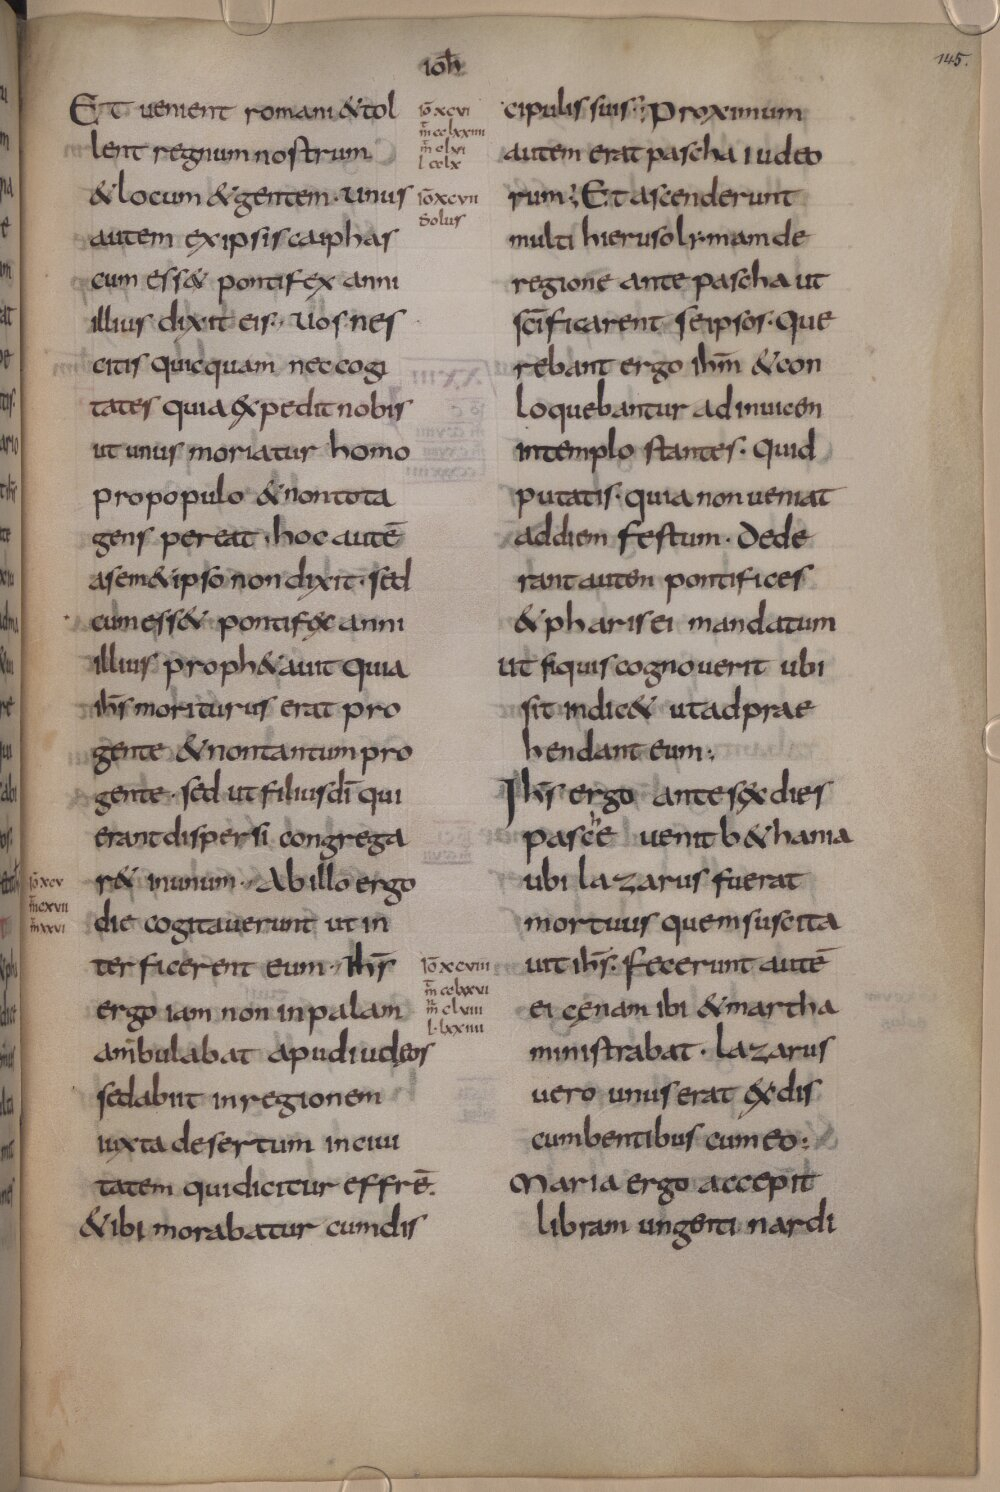 ioh̄
145.
Et uenient romani &tol
lent regnum nostrum
&locum &gentem· unus
autem exipsis caiphas
cum ess& pontifex anni
illius dixit eis· uos nes
citis quicquam nec cogi
tates quia expedit nobis
ut unus moriatur homo
propopulo &non tota
gens pereat· hoc autē
asem&ipso non dixit· sed
cum ess& pontifex anni
illius proph&auit quia
ih̄s moriturus erat pro
gente &nontantum pro
gente· sed ut filius dī qui
erant dispersi congrega
r& inunum· Ab illo ergo
die cogitauerunt ut in
terficerent eum· Ih̄s
ergo iam non in palam
ambulabat apud iudeos
sed abiit inregionem
iuxta desertum in ciui
tatem quidicitur effrē.
&ibi morabatur cumdis
iō xcvi
m̄ cclxxiiii
m̄ clvi
l cclx
iō xcvii
Solus
iō xcv
m̄ cxvii
m̄ xxvi
iō xcviii
m̄ cclxxvi
m̄ clviii
l· lxxiiii
cipulis suis· Proximum
autem erat pascha iudeo
rum· Et ascenderunt
multi hierusolymam de
regione ante pascha ut
scīficarent seipsos· Que
rebant ergo ihm̄ &con
loquebantur adinuicen
intemplo stantes· Quid
putatis· quia non ueniat
addiem festum· Dede
rant autem pontifices
&pharisei mandatum
ut siquis cognouerit ubi
sit indic& utadprae
hendant eum:
Ih̄s ergo ante sex dies
pasche uenit b&hania
ubi lazarus fuerat
mortuus quem suscita
uit ih̄s· fecerunt autē
ei cęnam ibi &martha
ministrabat· lazarus
uero unus erat exdis
cumbentibus cum eo:
Maria ergo accepit
libram ungenti nardi